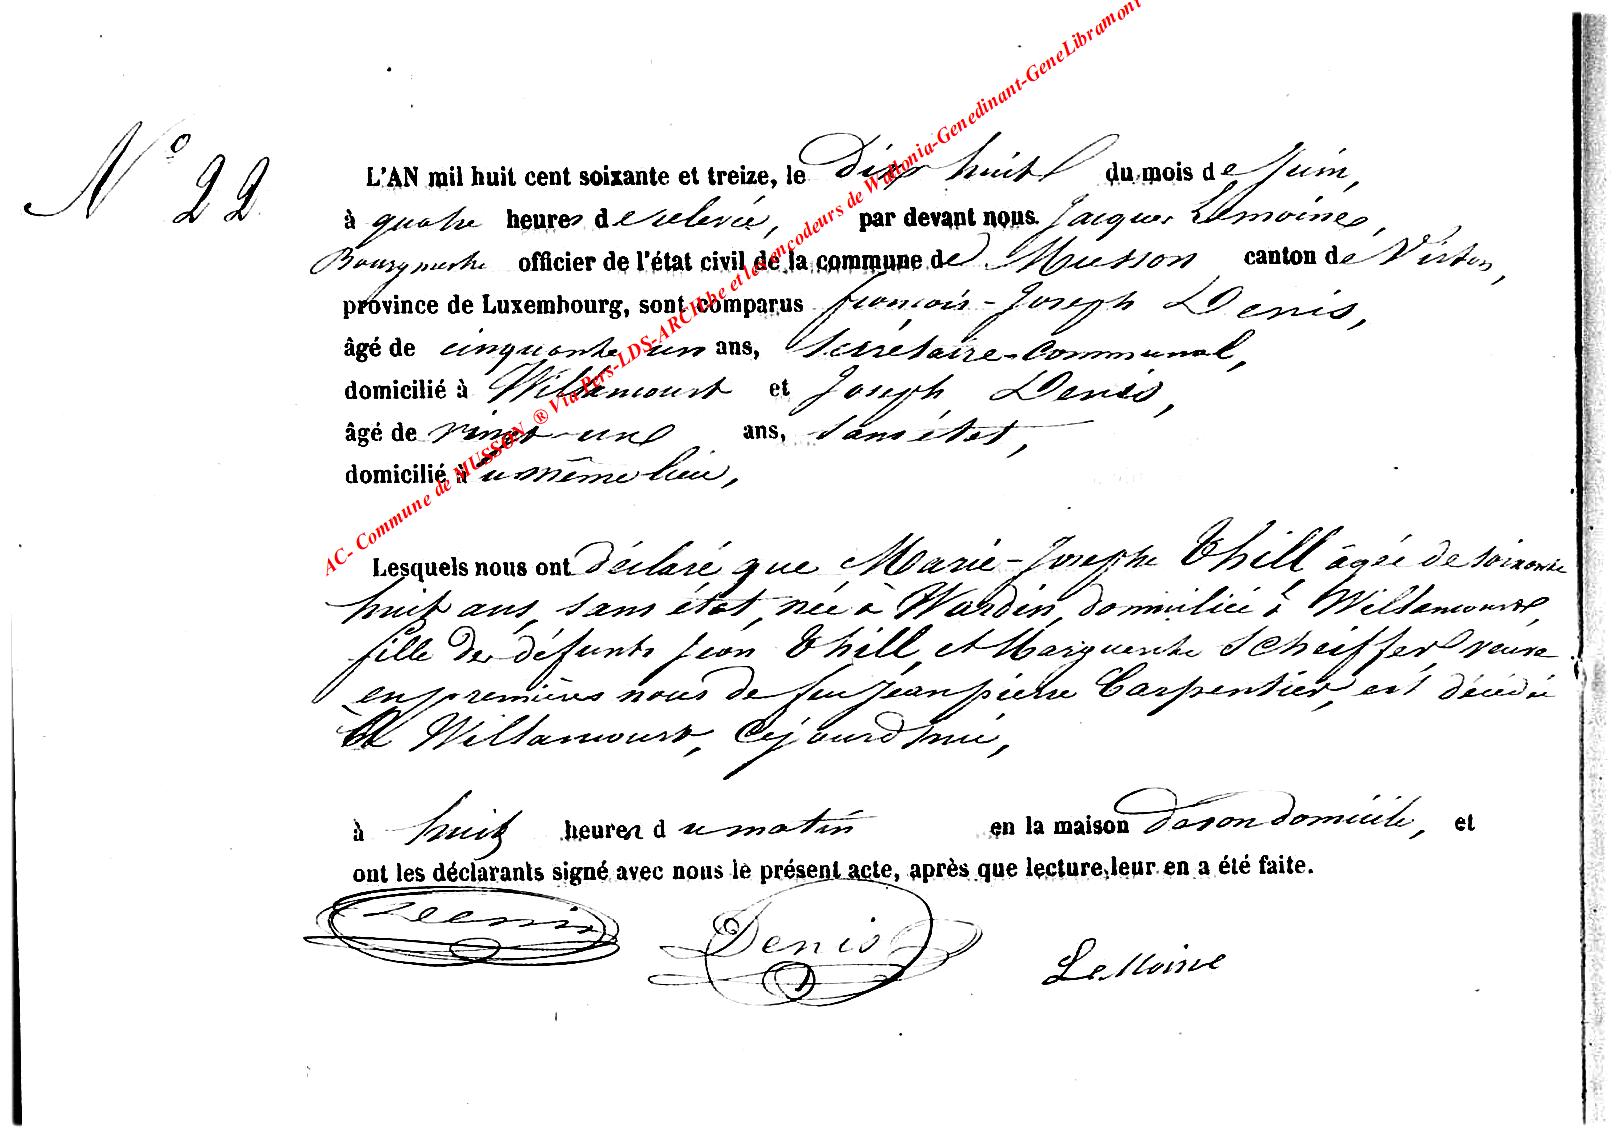 N° 22
L'AN mil huit cent soixante et treize, le dix huit du mois de Juin,
à quatre heures de relevée, par devant nous Jacques Lemoine,
Bourgmestre officier de l'état civil de la commune de Musson canton de Virton,
province de Luxembourg, sont comparus françois-Joseph Denis,
âgé de cinquante un ans, secrétaire-communal,
domicilié à Willancourt et Joseph Denis,
âgé de vingt-un ans, sans état,
domicilié au même lieu,
Lesquels nous ont déclaré que Marie-Josephe Thill âgée de soixante
huit ans, sans état, née à Wardin, domiciliée à Willancourt,
fille des défunts Jean Thill, et Marguerite Scheiffer, veuve
en premières noces de feu Jean pierre Carpentier, est décédée
à Willancourt, cejourd'hui,
à huit heures du matin en la maison de son domicile, et
ont les déclarants signé avec nous le présent acte, après que lecture leur en a été faite.
Denis Denis LeMoine
AC- Commune de MUSSON ® Via Pers-LDS-ARCH.be et les encodeurs de Wallonia-Genedinant-GeneLibramont